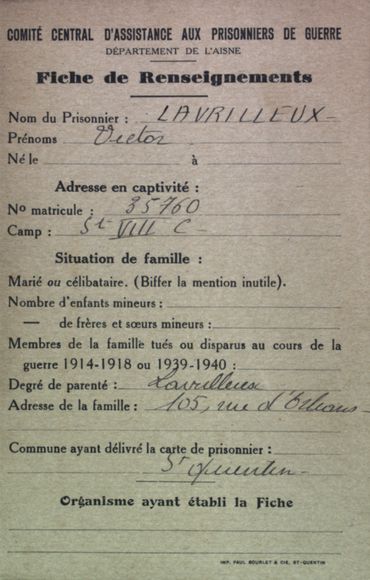 COMITÉ CENTRAL D'ASSISTANCE AUX PRISONNIERS DE GUERRE
DÉPARTEMENT DE L'AISNE
Fiche de Renseignements
Nom du Prisonnier : LAVRILLEUX
Prénoms Victor
Né le à
Adresse en captivité :
No matricule : 35760
Camp : St VIII C
Situation de famille :
Marié ou célibataire. (Biffer la mention inutile).
Nombre d'enfants mineurs :
— de frères et sœurs mineurs :
Membres de la famille tués ou disparus au cours de la
guerre 1914-1918 ou 1939-1940 :
Degré de parenté : Lavrilleux
Adresse de la famille : 105, rue d'Orléans
Commune ayant délivré la carte de prisonnier :
St Quentin
Organisme ayant établi la Fiche
IMP. PAUL BOURLET & CIE, ST-QUENTIN